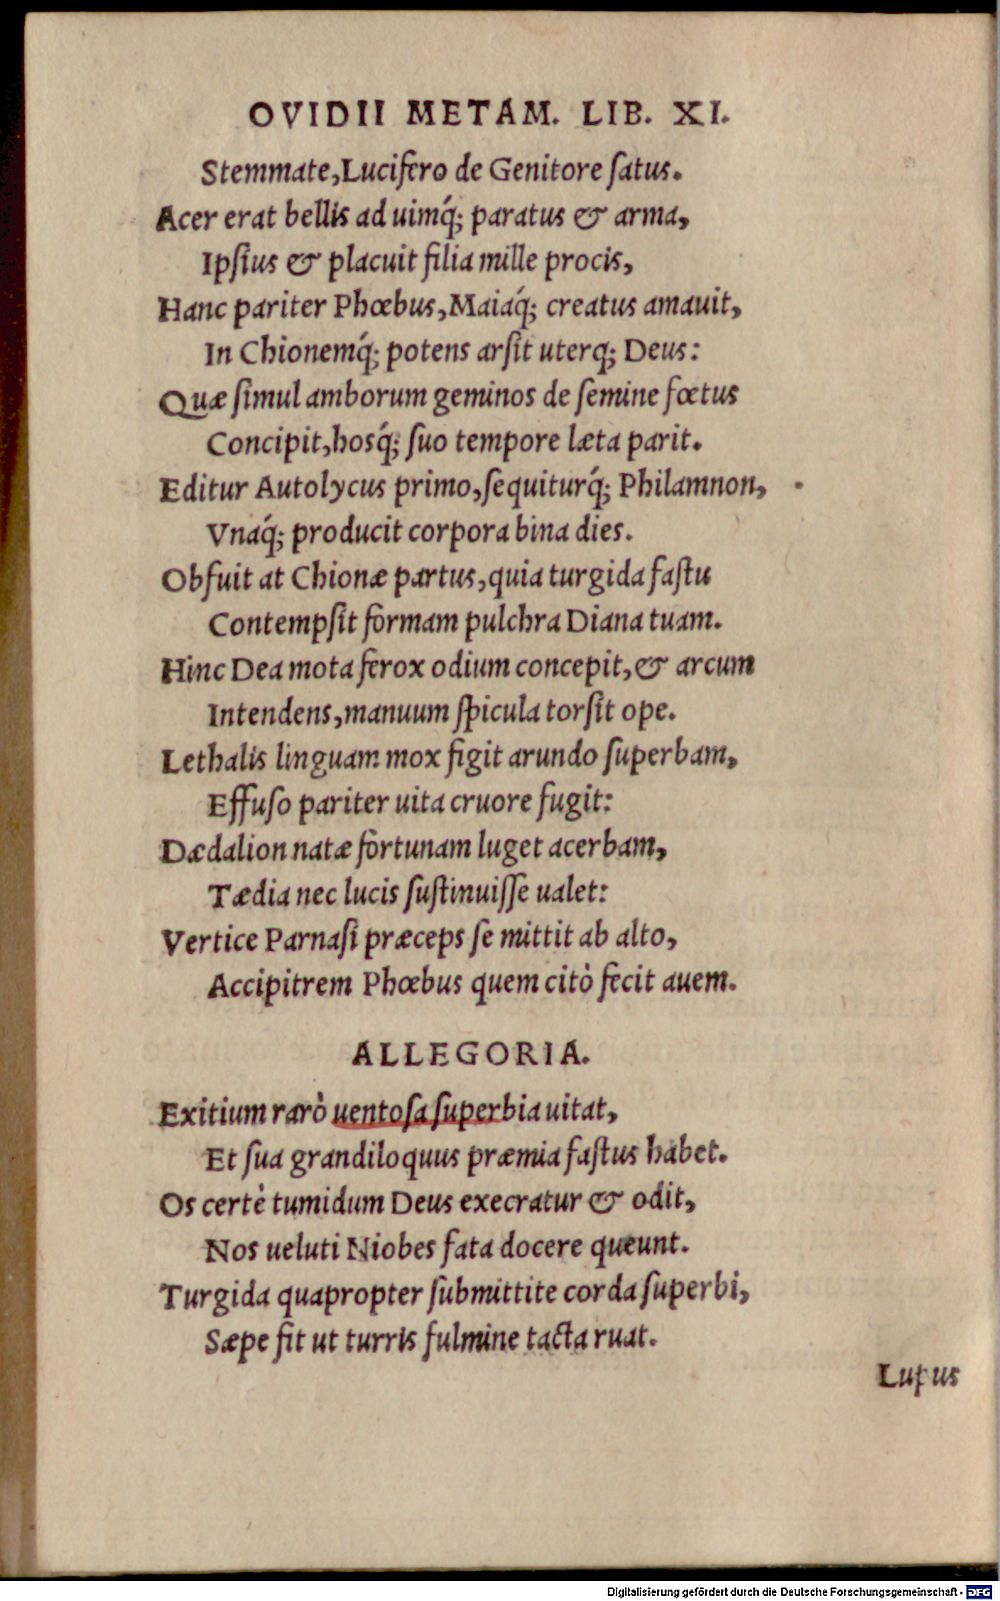 OVIDII METAM. LIB. XI.
Stemmate, Lucifero de Genitore ſatus.
Acer erat bellis ad uimq́; paratus & arma,
Ipſius & placuit filia mille procis,
Hanc pariter Phœbus, Maiaq́; creatus amauit,
In Chionemq́; potens arſit uterq; Deus:
Quæ ſimul amborum geminos de ſemine fœtus
Concipit, hosq́; ſuo tempore læta parit.
Editur Autolycus primo, ſequiturq́; Philamnon,
Vnaq́; producit corpora bina dies.
Obfuit at Chionæ partus, quia turgida faſtu
Contempſit formam pulchra Diana tuam.
Hinc Dea mota ferox odium concepit, & arcum
Intendens, manuum ſpicula torſit ope.
Lethalis linguam mox figit arundo ſuperbam,
Effuſo pariter uita cruore fugit:
Dædalion natæ fortunam luget acerbam,
Tædia nec lucis ſuſtinuiſſe ualet:
Vertice Parnaſi præceps ſe mittit ab alto,
Accipitrem Phœbus quem citò fecit auem.
ALLEGORIA.
Exitium rarò uentoſa ſuperbia uitat,
Et ſua grandiloquus præmia faſtus habet.
Os certè tumidum Deus execratur & odit,
Nos ueluti Niobes fata docere queunt.
Turgida quapropter ſubmittite corda ſuperbi,
Sæpe fit ut turris fulmine tacta ruat.
Lupus
Digitalisierung gefördert durch die Deutsche Forschungsgemeinschaft - DFG